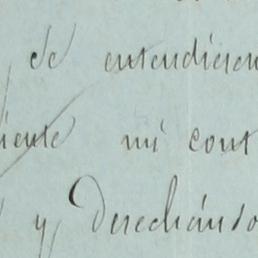 se entendieron
iente mi cont
y derechanso